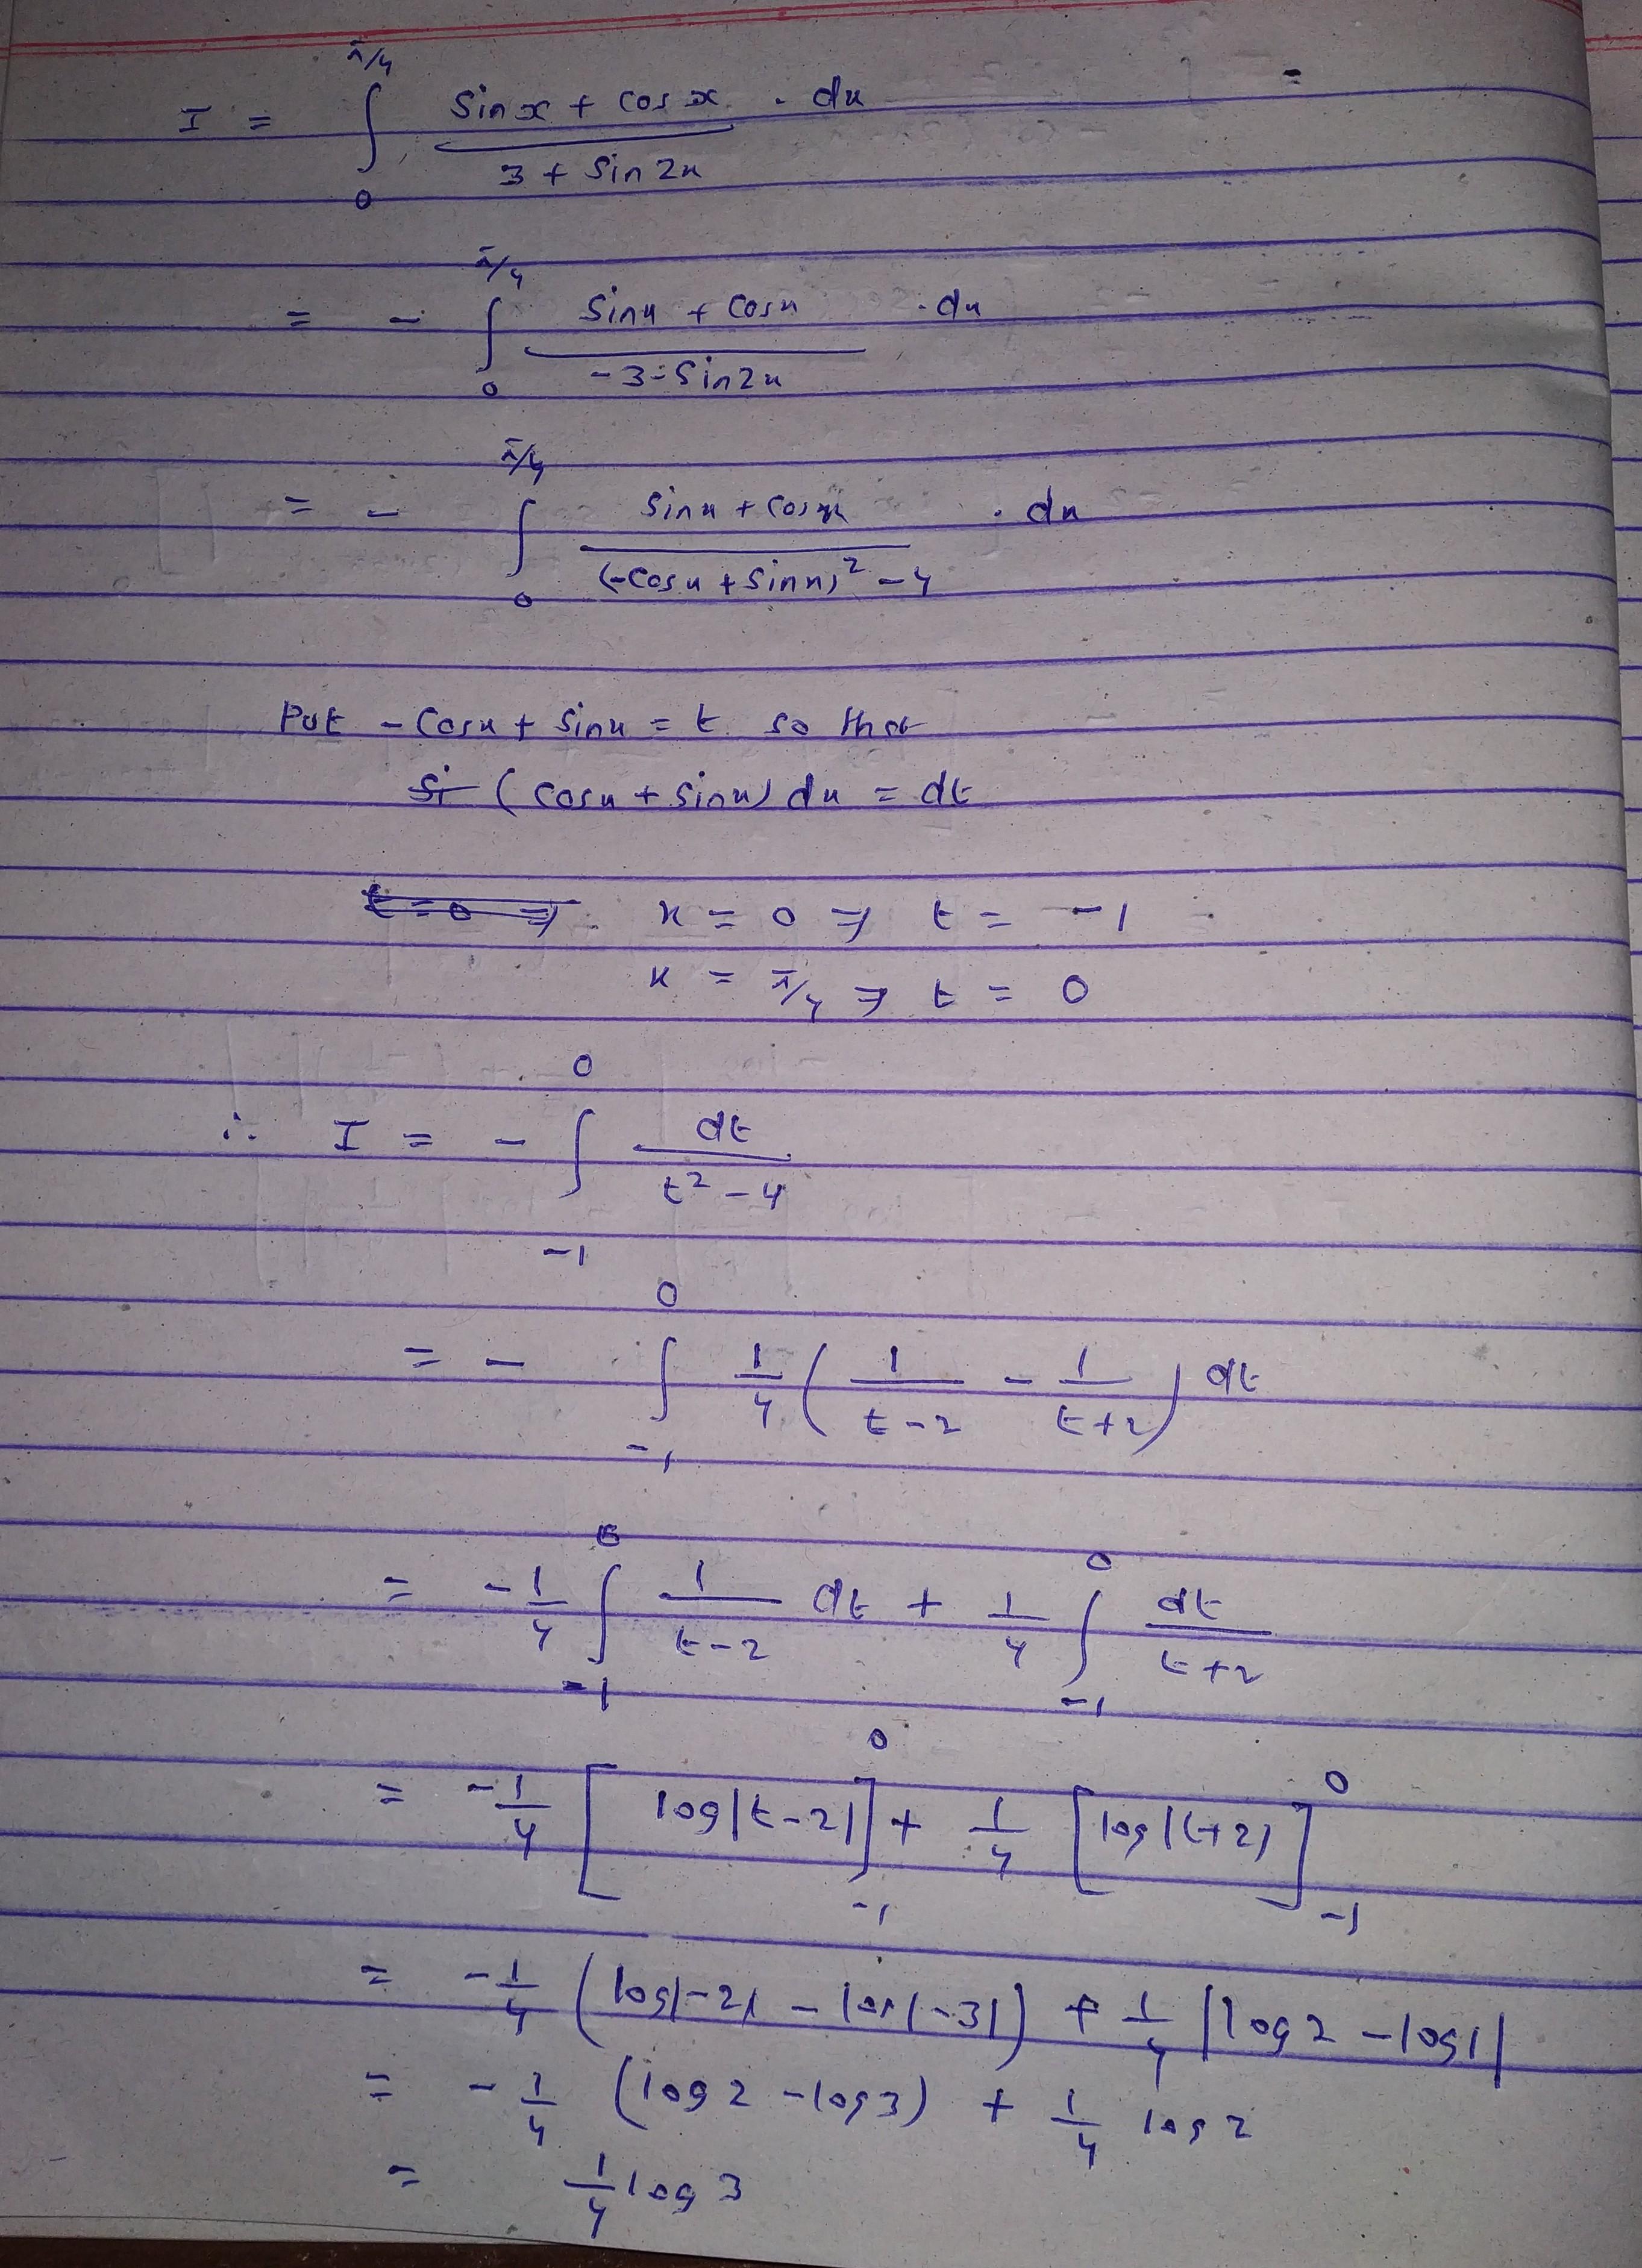 I = ∫₀^{π/4} (sin x + cos x)/(3 + sin 2x) . dx
= - ∫₀^{π/4} (sin x + cos x)/(-3 - sin 2x) . dx
= - ∫₀^{π/4} (sin x + cos x)/((-cos x + sin x)² - 4) . dx
Put - cos x + sin x = t so that
(cos x + sin x) dx = dt
x = 0 ⇒ t = -1
x = π/4 ⇒ t = 0
∴ I = - ∫₋₁⁰ dt/(t² - 4)
= - ∫₋₁⁰ 1/4 (1/(t-2) - 1/(t+2)) dt
= -1/4 ∫₋₁⁰ 1/(t-2) dt + 1/4 ∫₋₁⁰ dt/(t+2)
= -1/4 [log|t-2|]₋₁⁰ + 1/4 [log|t+2|]₋₁⁰
= -1/4 (log|-2| - log|-3|) + 1/4 |log 2 - log 1|
= -1/4 (log 2 - log 3) + 1/4 log 2
= 1/4 log 3